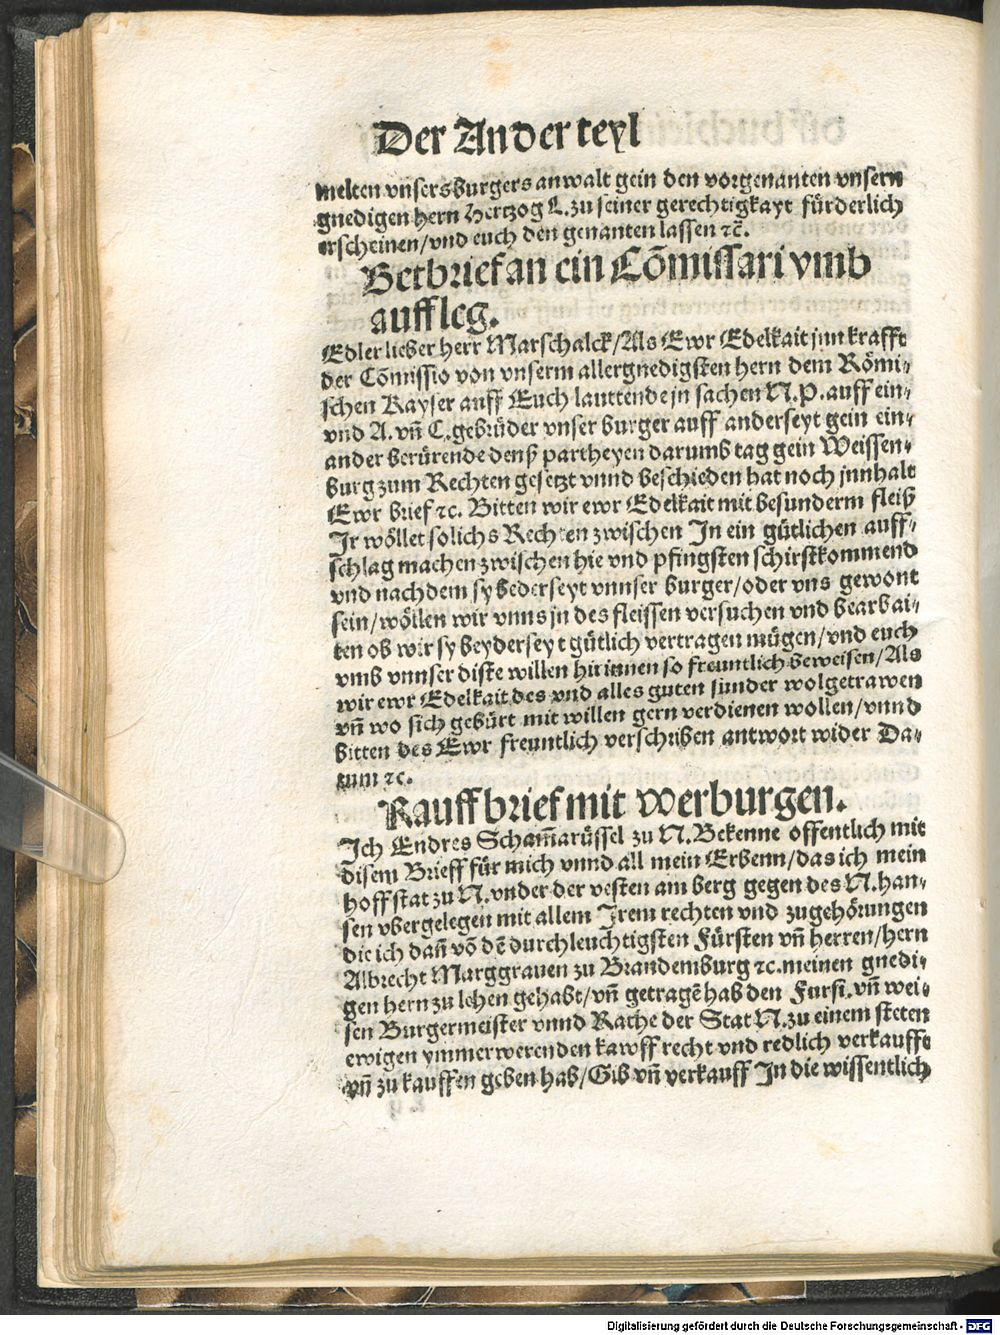 Der Ander teyl
melten vnsers burgers anwalt gein den vorgenanten vnsern
gnedigen hern Hertzog L. zu seiner gerechtigkayt fürderlich
erscheinen/vnd euch den genanten lassen ꝛc̃.
Betbrief an ein Cõmissari vmb
auffleg.
Edler lieber herr Marschalck/Als Ewr Edelkait jnn krafft
der Cõmissio von vnserm allergnedigsten hern dem Römi⸗
schen Kayser auff Euch lauttende jn sachen N.P. auff ein⸗
vnd A. vñ C. gebrüder vnser burger auff anderseyt gein ein⸗
ander berürende denß partheyen darumb tag gein Weissen⸗
burg zum Rechten gesetzt vnnd beschieden hat noch jnnhalt
Ewr brief ꝛc. Bitten wir ewr Edelkait mit besunderm fleiß
Ir wöllet solichs Rechten zwischen In ein gütlichen auff⸗
schlag machen zwischen hie vnd pfingsten schirstkommend
vnd nachdem sy bederseyt vnnser burger/oder vns gewont
sein/wöllen wir vnns jn des fleissen versuchen vnd bearbai⸗
ten ob wir sy beyderseyt gütlich vertragen mügen/vnd euch
vmb vnnser diste willen hirinnen so freuntlich beweisen/Als
wir ewr Edelkait des vnd alles guten sunder wolgetrawen
vñ wo sich gebürt mit willen gern verdienen wollen/vnnd
bitten des Ewr freuntlich verschriben antwort wider Da⸗
tum ꝛc.
Kauffbrief mit werburgen.
Ich Endres Scham̃arüssel zu N. Bekenne offentlich mit
disem Brieff für mich vnnd all mein Erbenn/das ich mein
hoffstat zu N. vnder der vesten am berg gegen des N. han⸗
sen vbergelegen mit allem Irem rechten vnd zugehörungen
die ich dañ võ dẽ durchleuchtigsten Fürsten vñ herren/hern
Albrecht Marggrauen zu Brandemburg ꝛc. meinen gnedi⸗
gen hern zu lehen gehabt/vñ getragẽ hab den Fursi. vñ wei⸗
sen Burgermeister vnnd Rathe der Stat N. zu einem steten
ewigen ymmerwerenden kawff recht vnd redlich verkaufft
vñ zu kauffen geben hab/Gib vñ verkauff In die wissentlich
Digitalisierung gefördert durch die Deutsche Forschungsgemeinschaft - DFG